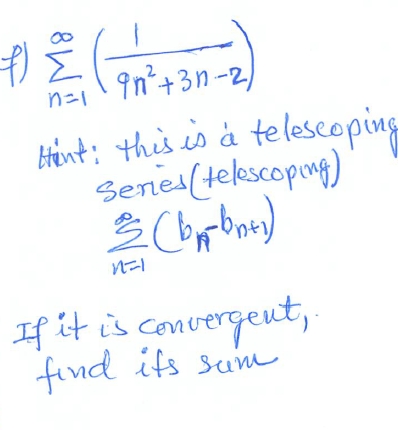 f) ∞ Σ n=1 ( 1 / 9n²+3n-2 )
Hint: this is a telescoping
series (telescoping)
∞ Σ n=1 (bn-bn+1)
If it is convergent,
find its sum